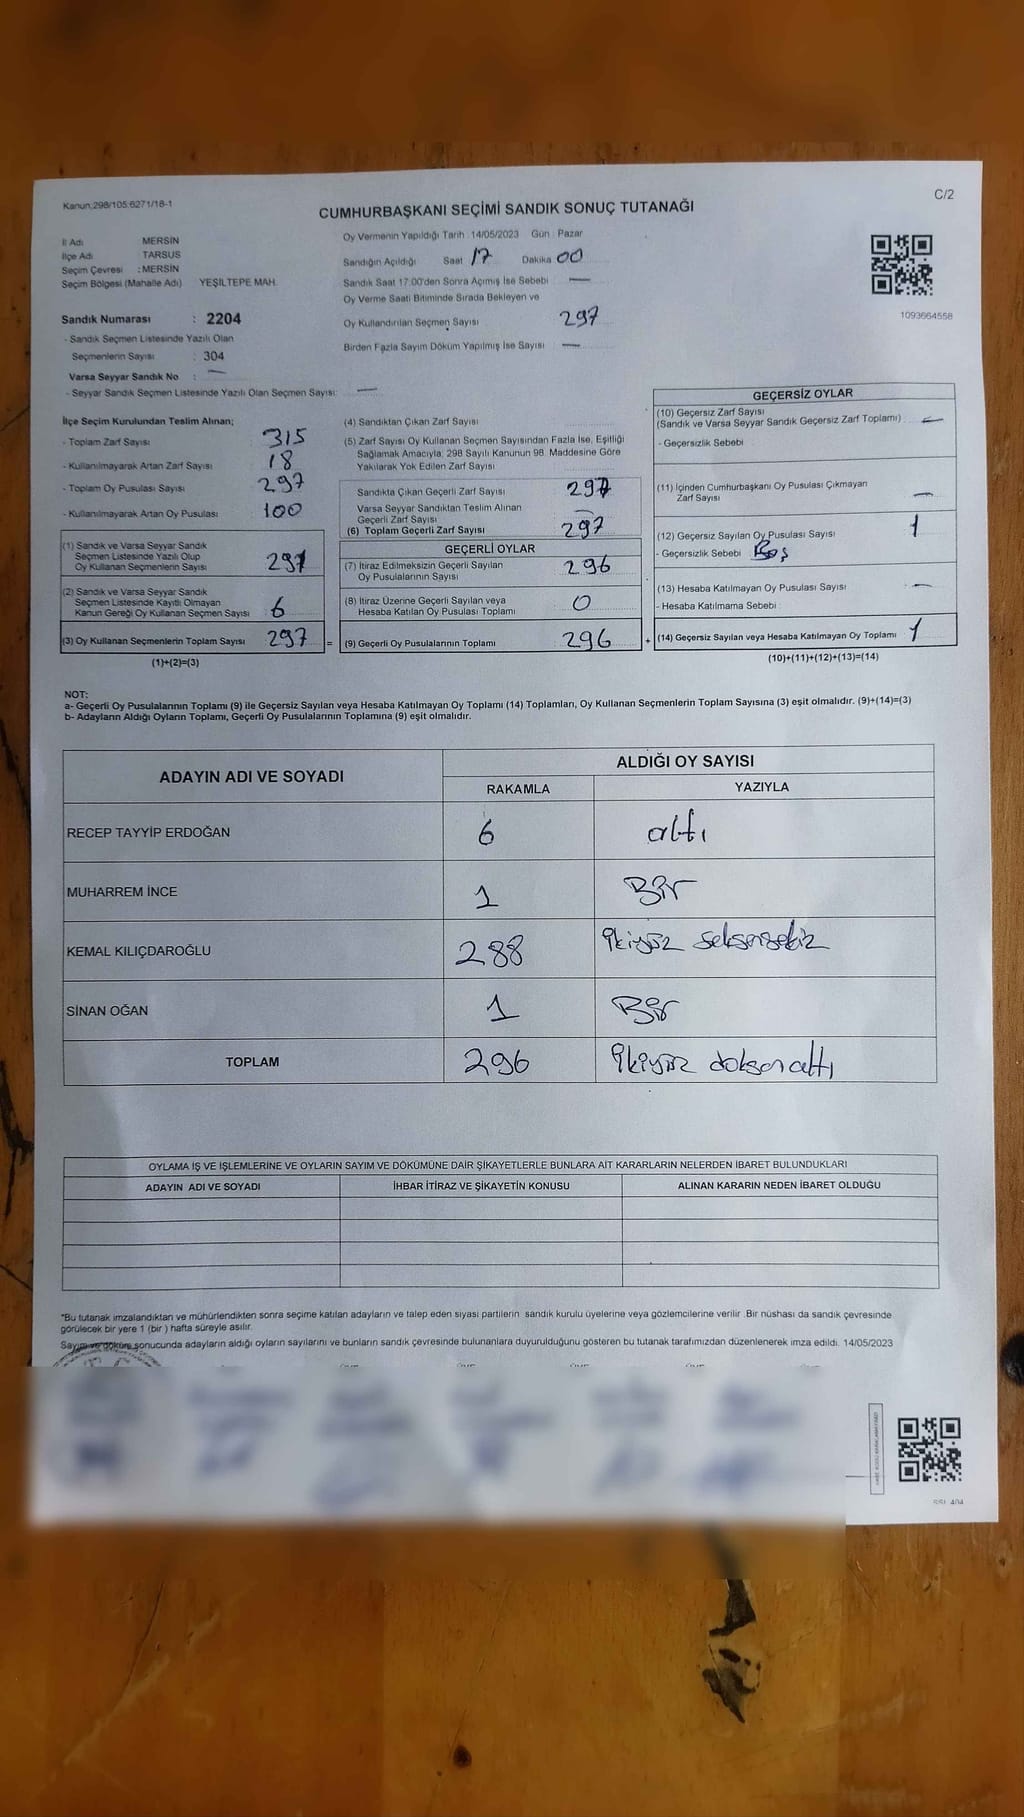 Kanun:298/105:6271/18-1
C/2
CUMHURBAŞKANI SEÇİMİ SANDIK SONUÇ TUTANAĞI
İl Adı MERSİN
İlçe Adı TARSUS
Seçim Çevresi : MERSİN
Seçim Bölgesi (Mahalle Adı) YEŞİLTEPE MAH.
Sandık Numarası : 2204
- Sandık Seçmen Listesinde Yazılı Olan
Seçmenlerin Sayısı : 304
Varsa Seyyar Sandık No : —
- Seyyar Sandık Seçmen Listesinde Yazılı Olan Seçmen Sayısı: —
Oy Vermenin Yapıldığı Tarih :14/05/2023 Gün : Pazar
Sandığın Açıldığı Saat 17 Dakika 00
Sandık Saat 17:00'den Sonra Açımış İse Sebebi —
Oy Verme Saati Bitiminde Sırada Bekleyen ve
Oy Kullandırılan Seçmen Sayısı 297
Birden Fazla Sayım Döküm Yapılmış İse Sayısı —
1093664558
İlçe Seçim Kurulundan Teslim Alınan;
- Toplam Zarf Sayısı 315
- Kullanılmayarak Artan Zarf Sayısı 18
- Toplam Oy Pusulası Sayısı 297
- Kullanılmayarak Artan Oy Pusulası 100
(1) Sandık ve Varsa Seyyar Sandık
Seçmen Listesinde Yazılı Olup
Oy Kullanan Seçmenlerin Sayısı 291
(2) Sandık ve Varsa Seyyar Sandık
Seçmen Listesinde Kayıtlı Olmayan
Kanun Gereği Oy Kullanan Seçmen Sayısı 6
(3) Oy Kullanan Seçmenlerin Toplam Sayısı 297 =
(1)+(2)=(3)
(4) Sandıktan Çıkan Zarf Sayısı
(5) Zarf Sayısı Oy Kullanan Seçmen Sayısından Fazla İse, Eşitliği
Sağlamak Amacıyla; 298 Sayılı Kanunun 98. Maddesine Göre
Yakılarak Yok Edilen Zarf Sayısı
Sandıkta Çıkan Geçerli Zarf Sayısı 297
Varsa Seyyar Sandıktan Teslim Alınan
Geçerli Zarf Sayısı —
(6) Toplam Geçerli Zarf Sayısı 297
GEÇERLİ OYLAR
(7) İtiraz Edilmeksizin Geçerli Sayılan
Oy Pusulalarının Sayısı 296
(8) İtiraz Üzerine Geçerli Sayılan veya
Hesaba Katılan Oy Pusulası Toplamı 0
(9) Geçerli Oy Pusulalarının Toplamı 296 +
GEÇERSİZ OYLAR
(10) Geçersiz Zarf Sayısı
(Sandık ve Varsa Seyyar Sandık Geçersiz Zarf Toplamı) —
- Geçersizlik Sebebi
(11) İçinden Cumhurbaşkanı Oy Pusulası Çıkmayan
Zarf Sayısı —
(12) Geçersiz Sayılan Oy Pusulası Sayısı 1
- Geçersizlik Sebebi Boş
(13) Hesaba Katılmayan Oy Pusulası Sayısı —
- Hesaba Katılmama Sebebi :
(14) Geçersiz Sayılan veya Hesaba Katılmayan Oy Toplamı 1
(10)+(11)+(12)+(13)=(14)
NOT:
a- Geçerli Oy Pusulalarının Toplamı (9) ile Geçersiz Sayılan veya Hesaba Katılmayan Oy Toplamı (14) Toplamları, Oy Kullanan Seçmenlerin Toplam Sayısına (3) eşit olmalıdır. (9)+(14)=(3)
b- Adayların Aldığı Oyların Toplamı, Geçerli Oy Pusulalarının Toplamına (9) eşit olmalıdır.
ADAYIN ADI VE SOYADI ALDIĞI OY SAYISI
RAKAMLA YAZIYLA
RECEP TAYYİP ERDOĞAN 6 altı
MUHARREM İNCE 1 Bir
KEMAL KILIÇDAROĞLU 288 ikiyüz seksensekiz
SİNAN OĞAN 1 Bir
TOPLAM 296 ikiyüz doksan altı
OYLAMA İŞ VE İŞLEMLERİNE VE OYLARIN SAYIM VE DÖKÜMÜNE DAİR ŞİKAYETLERLE BUNLARA AİT KARARLARIN NELERDEN İBARET BULUNDUKLARI
ADAYIN ADI VE SOYADI İHBAR İTİRAZ VE ŞİKAYETİN KONUSU ALINAN KARARIN NEDEN İBARET OLDUĞU
*Bu tutanak imzalandıktan ve mühürlendikten sonra seçime katılan adayların ve talep eden siyasi partilerin sandık kurulu üyelerine veya gözlemcilerine verilir .Bir nüshası da sandık çevresinde
görülecek bir yere 1 (bir ) hafta süreyle asılır.
Sayım ve döküm sonucunda adayların aldığı oyların sayılarını ve bunların sandık çevresinde bulunanlara duyurulduğunu gösteren bu tutanak tarafımızdan düzenlenerek imza edildi. 14/05/2023